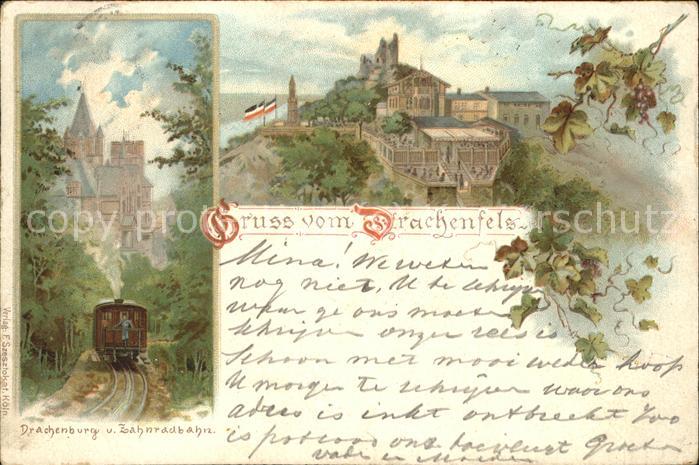 Gruss vom Drachenfels.
Mina! We weten
nog niet, U te schrijven
waar ge ons moet
schrijven onze reis is
Schoon met mooi weder hoop
U morgen te schrijven waar ons
adres is inkt ontbreekt Zoo
is potlood ons toevlugt Groeten
vader en Moeder
Drachenburg u. Zahnradbahn.
Verlag: F. Szesztokat, Köln.
copyright protected urheberrechtlich geschützt